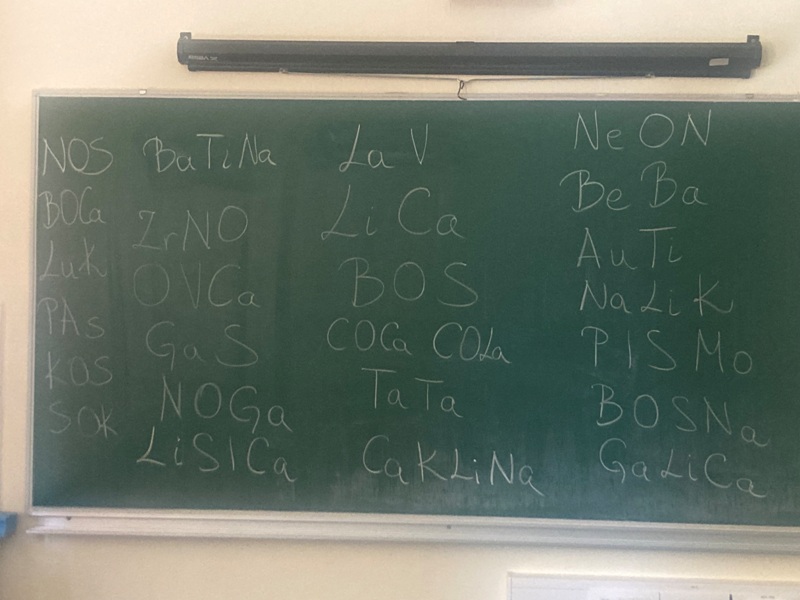 NOS
BOCa
LuK
PAs
KOS
SOK
BaTiNa
ZrNO
OVCa
GaS
NOGa
LiSICa
La V
Li Ca
BOS
COCa COLa
TaTa
CaKLiNa
NeON
BeBa
AuTi
NaLiK
PISMo
BOSNa
GaLiCa